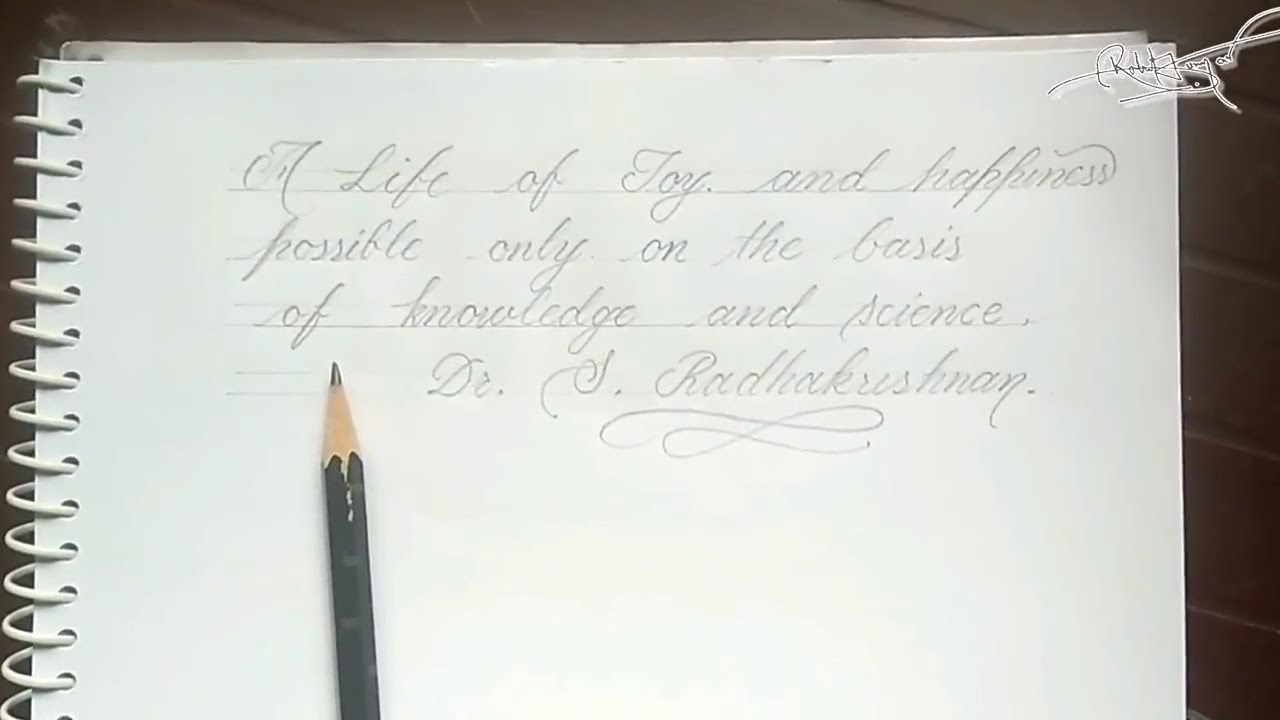 A Life of Joy. and happiness
possible only on the basis
of knowledge and science.
Dr. S. Radhakrishnan.